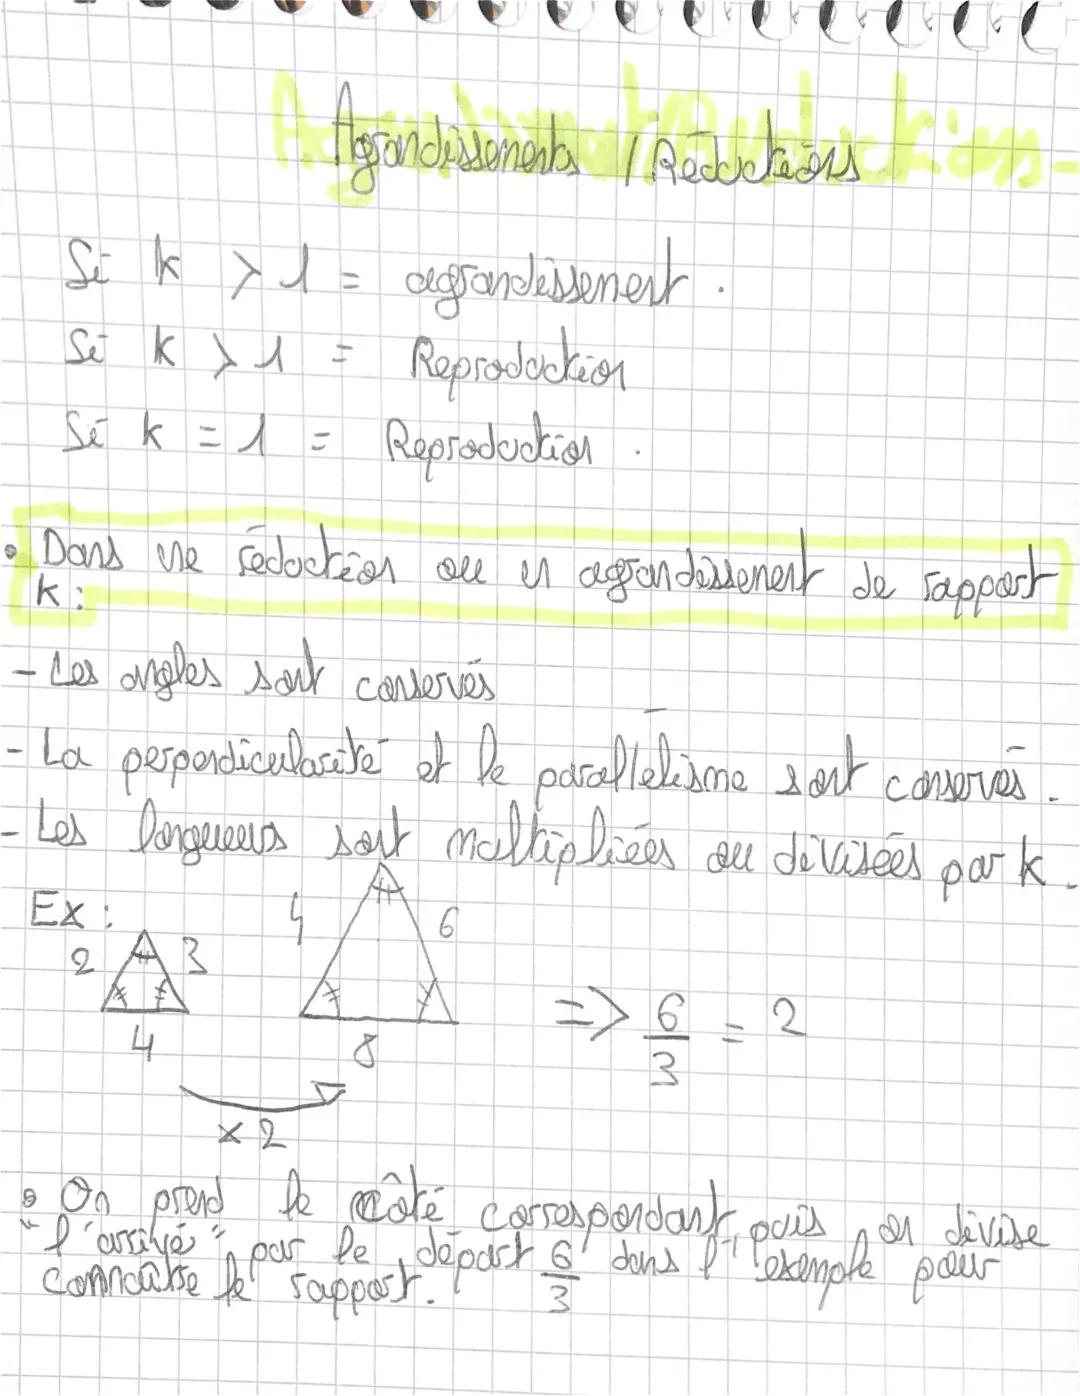 Agrandissements / Réductions
Si k > 1 = agrandissement.
Si k > 1 = Reproduction
Si k = 1 = Reproduction.
• Dans une réduction ou un agrandissement de rapport
k :
- Les angles sont conservés
- La perpendicularité et le parallélisme sont conservés.
- Les longueurs sont multipliées ou divisées par k.
Ex :
2 3 4
4 6 8
x 2
=> 6/3 = 2
• On prend le côté correspondant, puis on divise
"l'arrivé" par le départ 6/3 dans l'exemple pour
connaître le rapport.